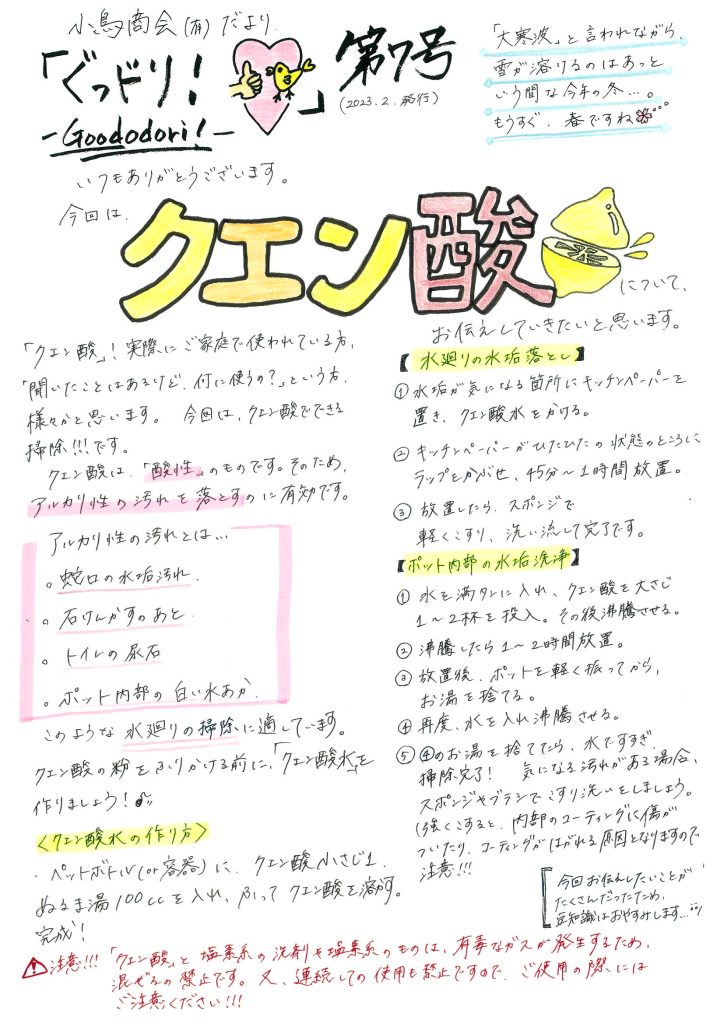 小鳥商会(有)だより
「ぐっドリ!」
第7号
-Goododori!-
(2023.2.発行)
「大寒波」と言われながら、
雪が溶けるのはあっと
いう間な今年の冬…。
もうすぐ、春ですね
いつもありがとうございます。
今回は、
クエン酸
について、
お伝えしていきたいと思います。
「クエン酸」!実際にご家庭で使われている方、
「聞いたことはあるけど、何に使うの?」という方、
様々かと思います。 今回は、クエン酸でできる
掃除!!!です。
クエン酸は、「酸性」のものです。そのため、
アルカリ性の汚れを落とすのに有効です。
アルカリ性の汚れとは…
。蛇口の水垢汚れ
。石けんかすのあと
。トイレの尿石
。ポット内部の白い水あか
このような水廻りの掃除に適しています。
クエン酸の粉をふりかける前に、「クエン酸水」を
作りましょう!
〈クエン酸水の作り方〉
・ペットボトル(or容器)に、クエン酸小さじ1、
ぬるま湯100ccを入れ、ふってクエン酸を溶かす。
完成!
【水廻りの水垢落とし】
① 水垢が気になる箇所にキッチンペーパーを
置き、クエン酸水をかける。
② キッチンペーパーがひたひたの状態のところに
ラップをかぶせ、45分〜1時間放置。
③ 放置したら、スポンジで
軽くこすり、洗い流して完了です。
【ポット内部の水垢洗浄】
① 水を満タンに入れ、クエン酸を大さじ
1〜2杯を投入。その後沸騰させる。
② 沸騰したら1〜2時間放置。
③ 放置後、ポットを軽く振ってから、
お湯を捨てる。
④ 再度、水を入れ沸騰させる。
⑤ ④のお湯を捨てたら、水ですすぎ、
掃除完了! 気になる汚れがある場合、
スポンジやブラシでこすり洗いをしましょう。
(強くこすると、内部のコーティングに傷が
ついたり、コーティングがはがれる原因となりますので
注意!!!
今回お伝えしたいことが
たくさんだったため、
豆知識はおやすみします…
注意!!! 「クエン酸」と塩素系の洗剤や塩素系のものは、有毒なガスが発生するため、
混ぜるの禁止です。又、連続しての使用も禁止ですので、ご使用の際には
ご注意ください!!!